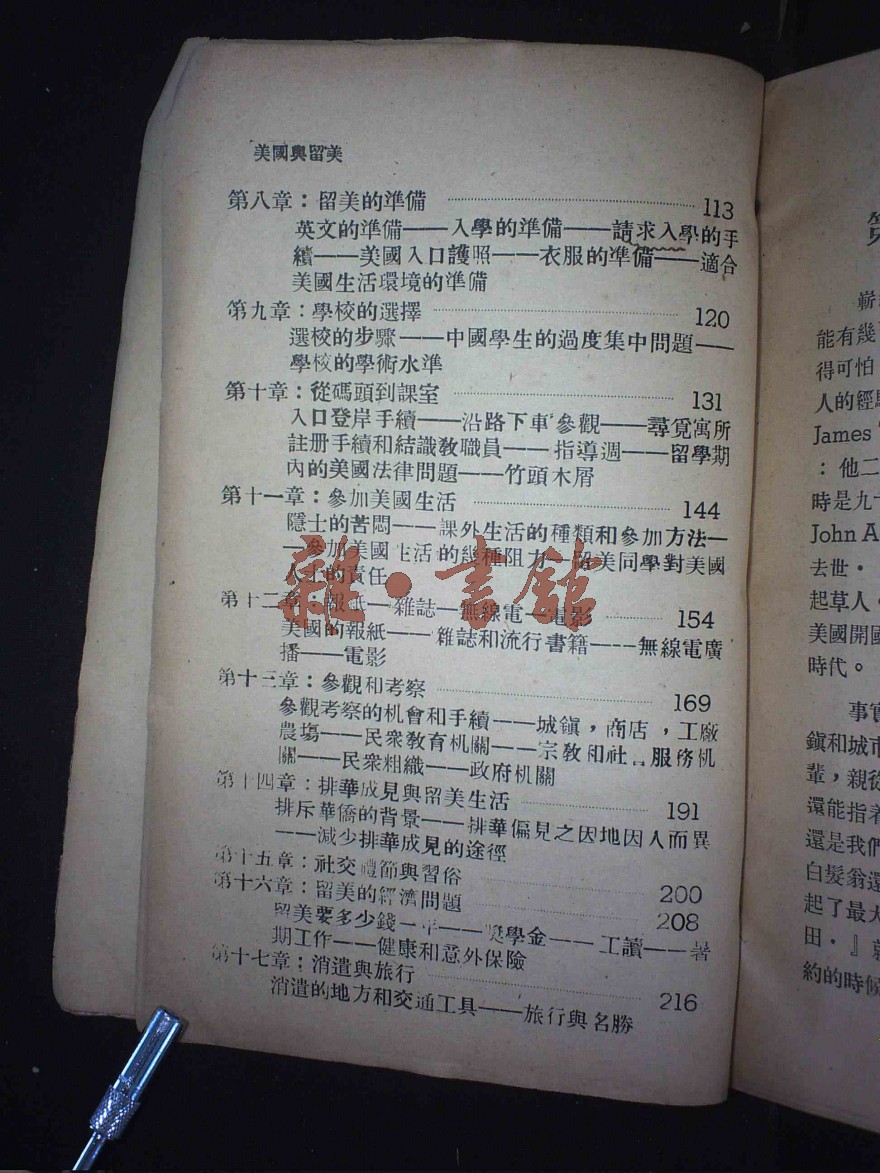 美國與留美
第八章：留美的準備 113
英文的準備——入學的準備——請求入學的手
續——美國入口護照——衣服的準備——適合
美國生活環境的準備
第九章：學校的選擇 120
選校的步驟——中國學生的過度集中問題——
學校的學術水準
第十章：從碼頭到課室 131
入口登岸手續——沿路下車參觀——尋覓寓所
註册手續和結識敎職員——指導週——留學期
內的美國法律問題——竹頭木屑
第十一章：參加美國生活 144
隱士的苦悶——課外生活的種類和參加方法—
—參加美國生活的幾種阻力——留美同學對美國
人士的責任
第十二章：報紙—雜誌—無線電—電影 154
美國的報紙——雜誌和流行書籍——無線電廣
播——電影
第十三章：參觀和考察 169
參觀考察的机會和手續——城鎭，商店，工廠
農塲——民衆敎育机關——宗敎和社服務机
關——民衆組織——政府机關
第十四章：排華成見與留美生活 191
排斥華僑的背景——排華偏見之因地因人而異
——減少排華成見的途徑
第十五章：社交禮節與習俗 200
第十六章：留美的經濟問題 208
留美要多少錢一年——獎學金——工讀——暑
期工作——健康和意外保險
第十七章：消遣與旅行 216
消遣的地方和交通工具——旅行與名勝
雜·書館
第
嶄
能有幾
得可怕
人的經驗
James
：他二
時是九十
John A
去世・
起草人，
美國開國
時代。
事實
鎭和城市
輩，親從
還能指着
還是我們
白髮翁還
起了最大
田・』就
約的時候